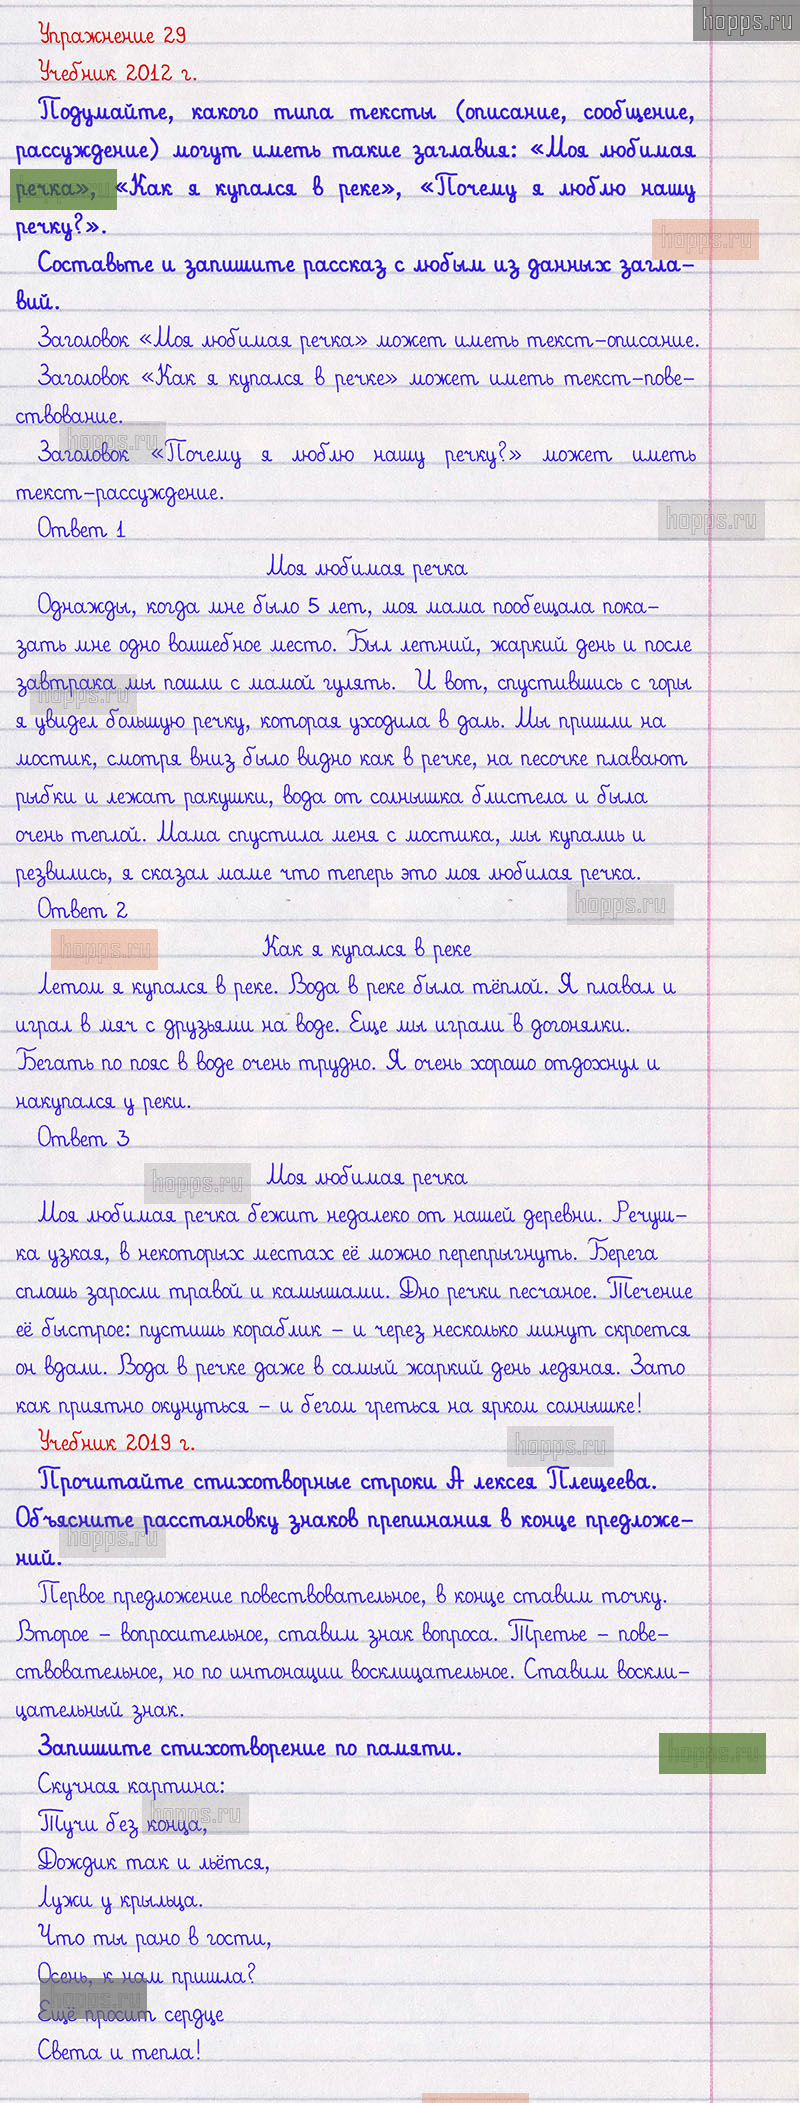 hopps.ru
Упражнение 29
Учебник 2012 г.
Подумайте, какого типа тексты (описание, сообщение,
рассуждение) могут иметь такие заглавия: «Моя любимая
речка», «Как я купался в реке», «Почему я люблю нашу
речку?».
hopps.ru
Составьте и запишите рассказ с любым из данных загла-
вий.
Заголовок «Моя любимая речка» может иметь текст-описание.
Заголовок «Как я купался в речке» может иметь текст-пове-
ствование.
hopps.ru
Заголовок «Почему я люблю нашу речку?» может иметь
текст-рассуждение.
hopps.ru
Ответ 1
Моя любимая речка
Однажды, когда мне было 5 лет, моя мама пообещала пока-
зать мне одно волшебное место. Был летний, жаркий день и после
завтрака мы пошли с мамой гулять. И вот, спустившись с горы
hopps.ru
я увидел большую речку, которая уходила в даль. Мы пришли на
мостик, смотря вниз было видно как в речке, на песочке плавают
рыбки и лежат ракушки, вода от солнышка блистела и была
очень теплой. Мама спустила меня с мостика, мы купаль и
резвились, я сказал маме что теперь это моя любилая речка.
hopps.ru
Ответ 2
hopps.ru
Как я купался в реке
Летом я купался в реке. Вода в реке была тёплой. Я плавал и
играл в мяч с друзьями на воде. Еще мы играли в догонялки.
Бегать по пояс в воде очень трудно. Я очень хорошо отдохнул и
накупался у реки.
Ответ 3
hopps.ru
Моя любимая речка
Моя любимая речка бежит недалеко от нашей деревни. Речуш-
ка узкая, в некоторых местах её можно перепрыгнуть. Берега
сплошь заросли травой и камышами. Дно речки песчаное. Течение
её быстрое: пустишь кораблик – и через несколько минут скроется
он вдали. Вода в речке даже в самый жаркий день ледяная. Зато
как приятно окунуться – и бегом греться на ярком солнышке!
Учебник 2019 г.
hopps.ru
Прочитайте стихотворные строки А лексея Плещеева.
Объясните расстановку знаков препинания в конце предложе-
hopps.ru
ний.
Первое предложение повествовательное, в конце ставим точку.
Второе – вопросительное, ставим знак вопроса. Третье – пове-
ствовательное, но по интонации восклицательное. Ставим воскли-
цательный знак.
Запишите стихотворение по памяти.
hopps.ru
Скучная картина:
Тучи без конца,
hopps.ru
Дождик так и льётся,
Лужи у крыльца.
Что ты рано в гости,
Осень, к нам пришла?
hopps.ru
Ещё просит сердце
Света и тепла!